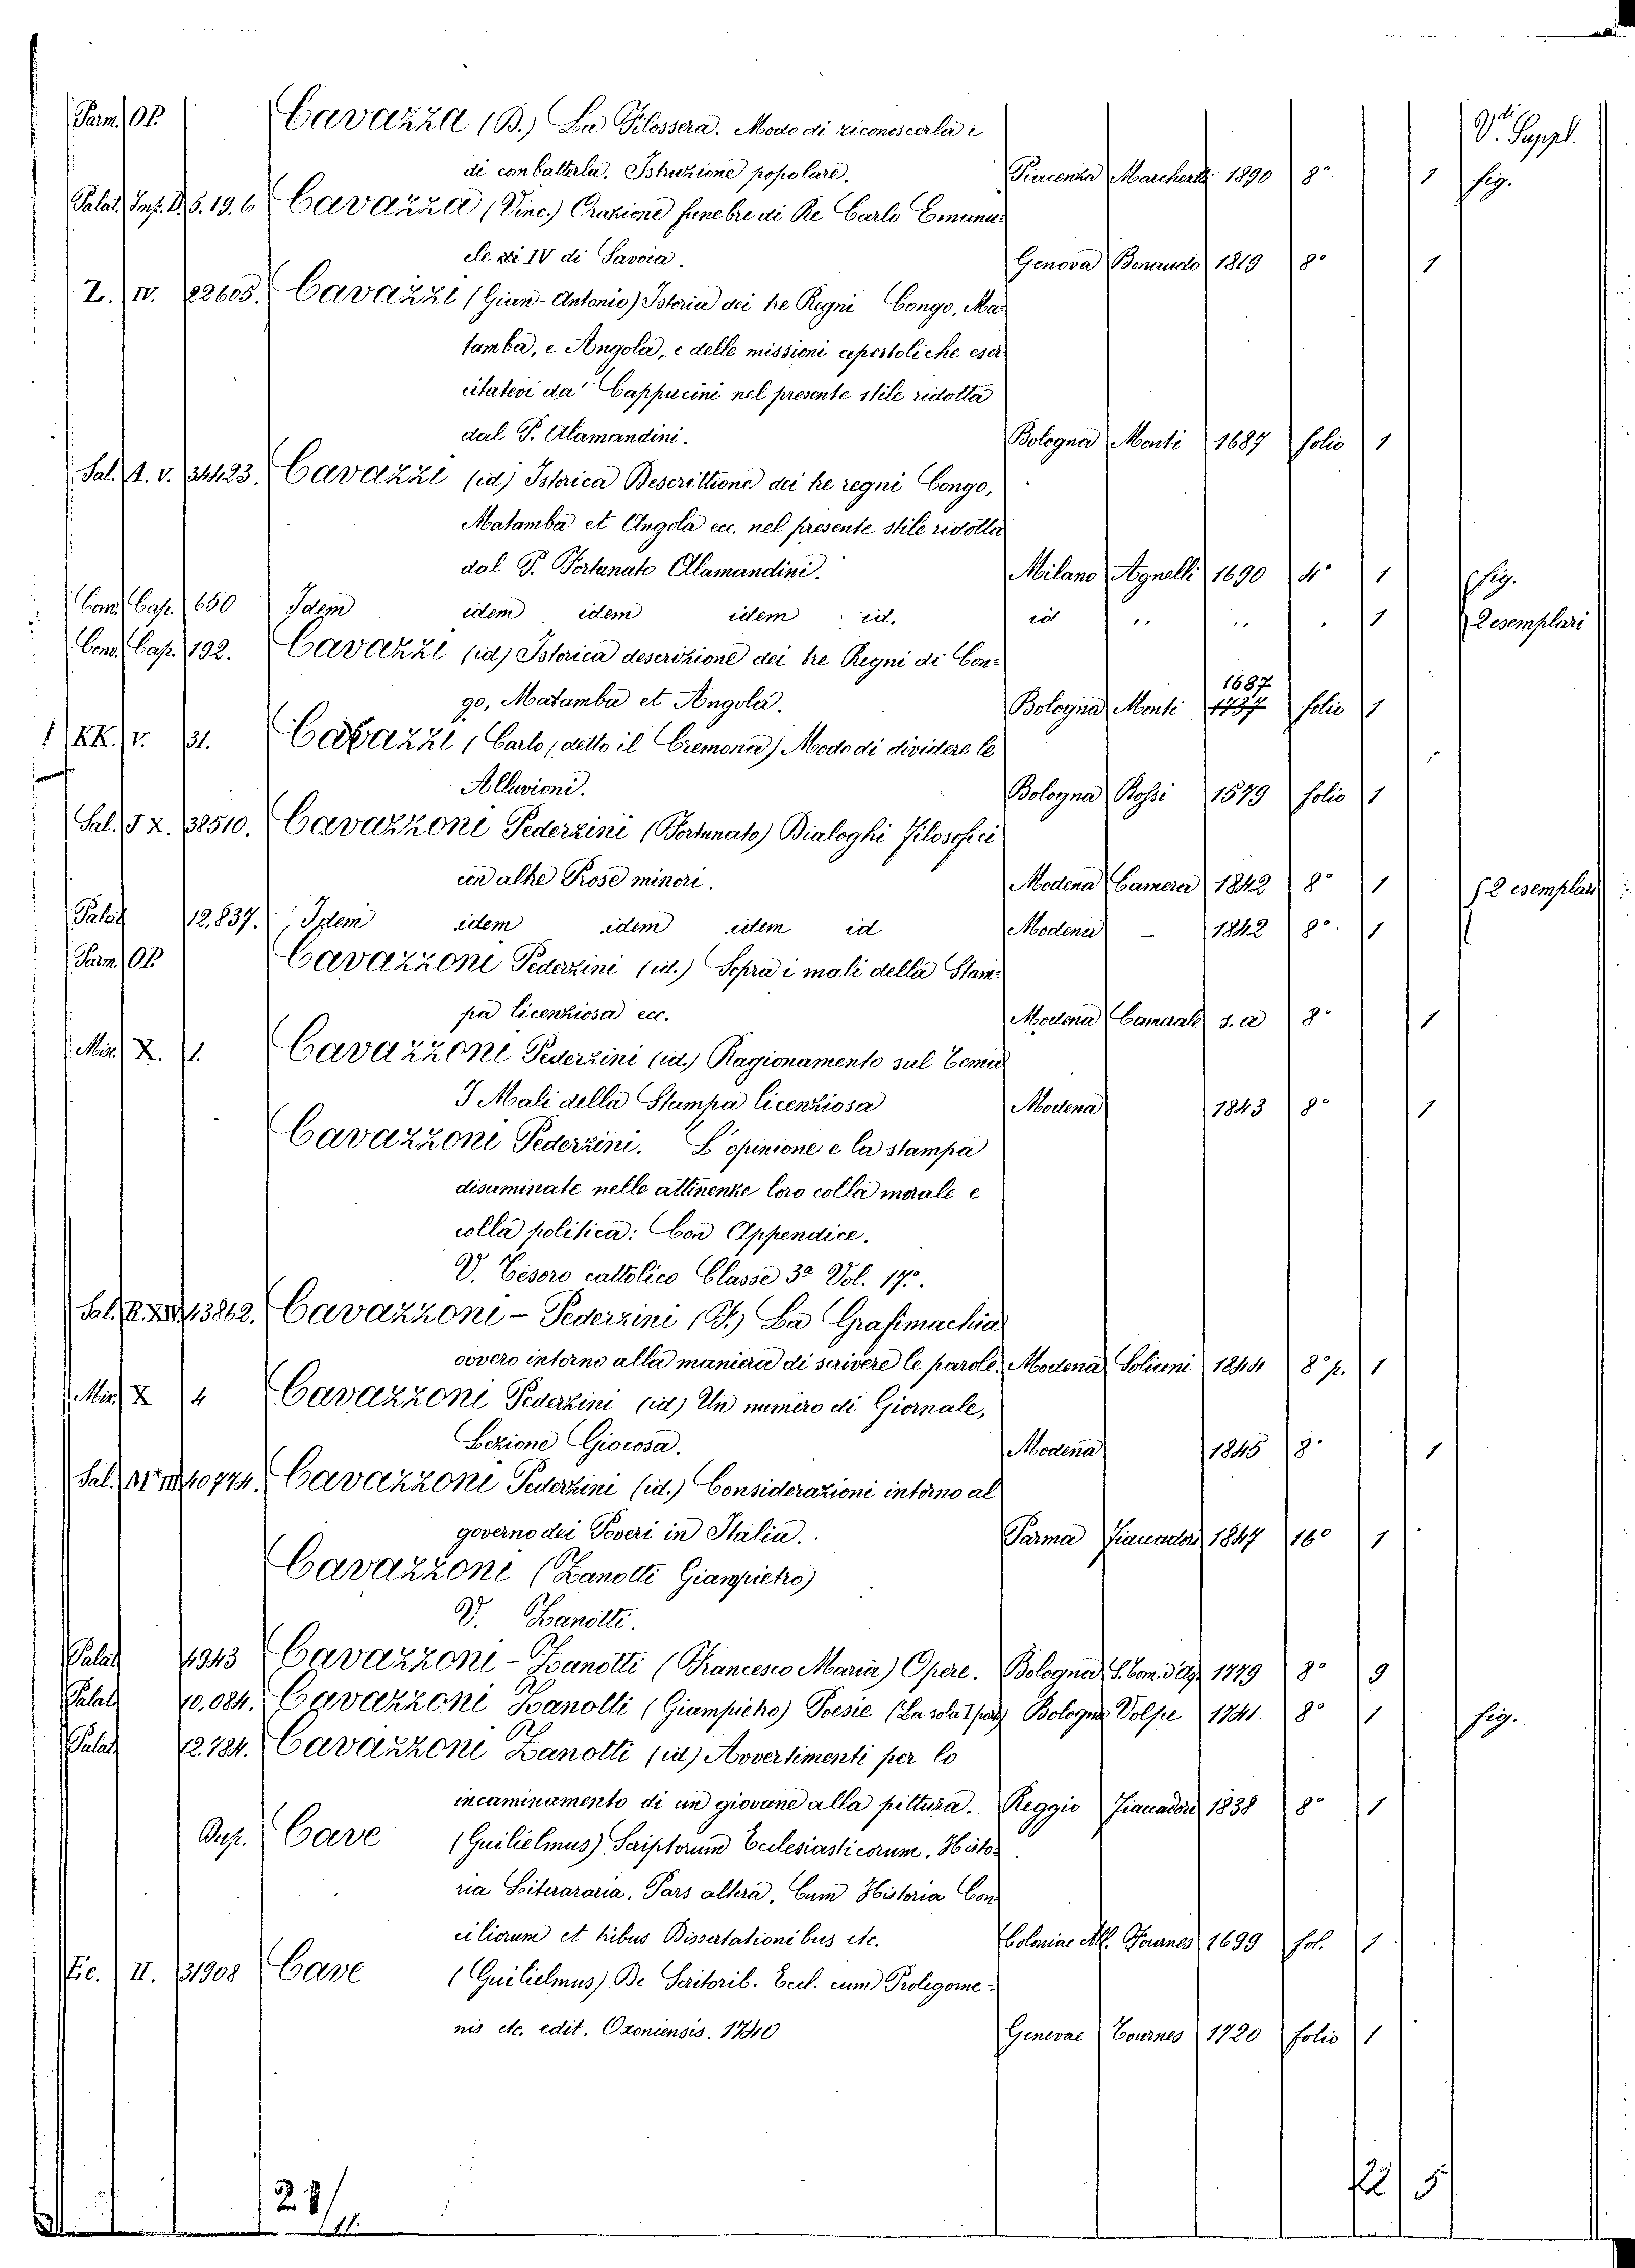 Parm. Op. Cavazza (B.) La Filossera. Modo di riconoscerla e V.di Suppl.
di combatterla. Istruzione popolare. Piacenza Marchesotti 1890 8° 1 fig.
Palat. Inf. D. 5. 19. 6 Cavazza (Vinc.) Orazione funebre di Re Carlo Emanu-
ele IV di Savoia. Genova Bonaudo 1819 8° 1
Z. IV. 22605. Cavazzi (Gian-Antonio) Istoria dei tre Regni Congo, Ma-
tamba, e Angola, e delle missioni apostoliche eser-
citatevi da' Cappucini nel presente stile ridotta
dal P. Alamandini. Bologna Monti 1687 folio 1
Sal. A. V. 34423. Cavazzi (id) Istorica Descrittione dei tre regni Congo,
Matamba et Angola ecc. nel presente stile ridotta
dal P. Fortunato Alamandini. Milano Agnelli 1690 4° 1 fig.
Cons. Cap. 650 Idem idem idem idem id. id " " " 1 2 esemplari
Cons. Cap. 192. Cavazzi (id) Istorica descrizione dei tre Regni di Con-
1687
go, Matamba et Angola. Bologna Monti 1737 folio 1
KK. V. 31. Cavazzi (Carlo, detto il Cremona) Modo di dividere le
Alluvioni. Bologna Rossi 1579 folio 1
Sal. J X. 38510. Cavazzoni Pederzini (Fortunato) Dialoghi Filosofici
con altre Prose minori. Modena Camera 1842 8° 1 2 esemplari
Palat 12.837. Idem idem idem idem id Modena – 1842 8°. 1
Parm. Op. Cavazzoni Pederzini (id.) Sopra i mali della Stam-
pa licenziosa ecc. Modena Camerale s. a 8° 1
Misc. X. 1. Cavazzoni Pederzini (id.) Ragionamento sul Tema
I Mali della Stampa licenziosa Modena 1843 8° 1
Cavazzoni Pederzini. L'opinione e la stampa
disuminate nelle attinenze loro colla morale e
colla politica: Con Appendice.
V. Tesoro cattolico Classe 3ª Vol. 17°.
Sal. 43862. Cavazzoni - Pederzini (F.) La Grafimachia
ovvero intorno alla maniera di scrivere le parole. Modena Soliani 1844 8° p. 1
Misc. X 4 Cavazzoni Pederzini (id) Un numero di Giornale,
Lezione Giocosa. Modena 1845 8° 1
Sal. 40774. Cavazzoni Pederzini (id.) Considerazioni intorno al
governo dei Poveri in Italia. Parma Fiaccadori 1847 16° 1
Cavazzoni (Zanotti Giampietro)
V. Zanotti.
Palat 4943 Cavazzoni - Zanotti (Francesco Maria) Opere. Bologna 1779 8° 9
Palat 10.084. Cavazzoni Zanotti (Giampietro) Poesie (La sola I par) Bologna Volpe 1741. 8° 1 fig.
Palat 12.784. Cavazzoni Zanotti (id) Avvertimenti per lo
incaminamento di un giovane alla pittura. Reggio Fiaccadori 1838 8° 1
Dup. Cave (Guilielmus) Scriptorum Ecclesiasticorum. Histo-
ria Literararia. Pars altera. Cum Historia Con
ciliorum et tribus Dissertationibus etc. Coloniae All. Tournes 1699 fol. 1
Fic. II. 31908 Cave (Guilielmus) De Scritorib. Eccl. cum Prolegome-
nis etc. edit. Oxoniensis. 1740 Genevae Tournes 1720 folio 1
28/ 22 5